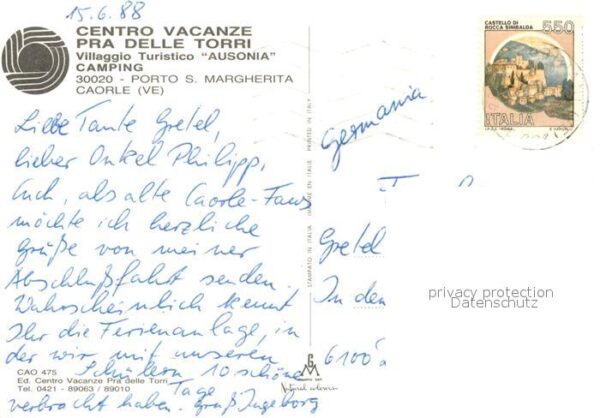 15.6.88
CENTRO VACANZE
PRA DELLE TORRI
Villaggio Turistico "AUSONIA"
CAMPING
30020 - PORTO S. MARGHERITA
CAORLE (VE)
Liebe Tante Gretel,
lieber Onkel Philipp,
Euch, als alte Caorle-Fans
möchte ich herzliche
Grüße von meiner
Abschlußfahrt senden.
Wahrscheinlich kennt
Ihr die Ferienanlage, in
der wir mit unseren
Schülern 10 schöne
Tage
verbracht haben. Gruß Ingeborg
CAO 475
Ed. Centro Vacanze Pra delle Torri
Tel. 0421 - 89063 / 89010
STAMPATO IN ITALIA IMPRIMÉ EN ITALIE PRINTED IN ITALY
CASTELLO DI
ROCCA SINIBALDA
550
ITALIA
Germania
Gretel
In den
6100
privacy protection
Datenschutz